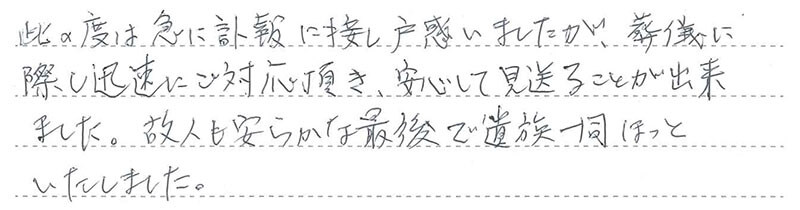 此の度は急に訃報に接し戸惑いましたが、葬儀に
際し迅速にご対応頂き、安心して見送ることが出来
ました。故人も安らかな最後で遺族一同ほっと
いたしました。